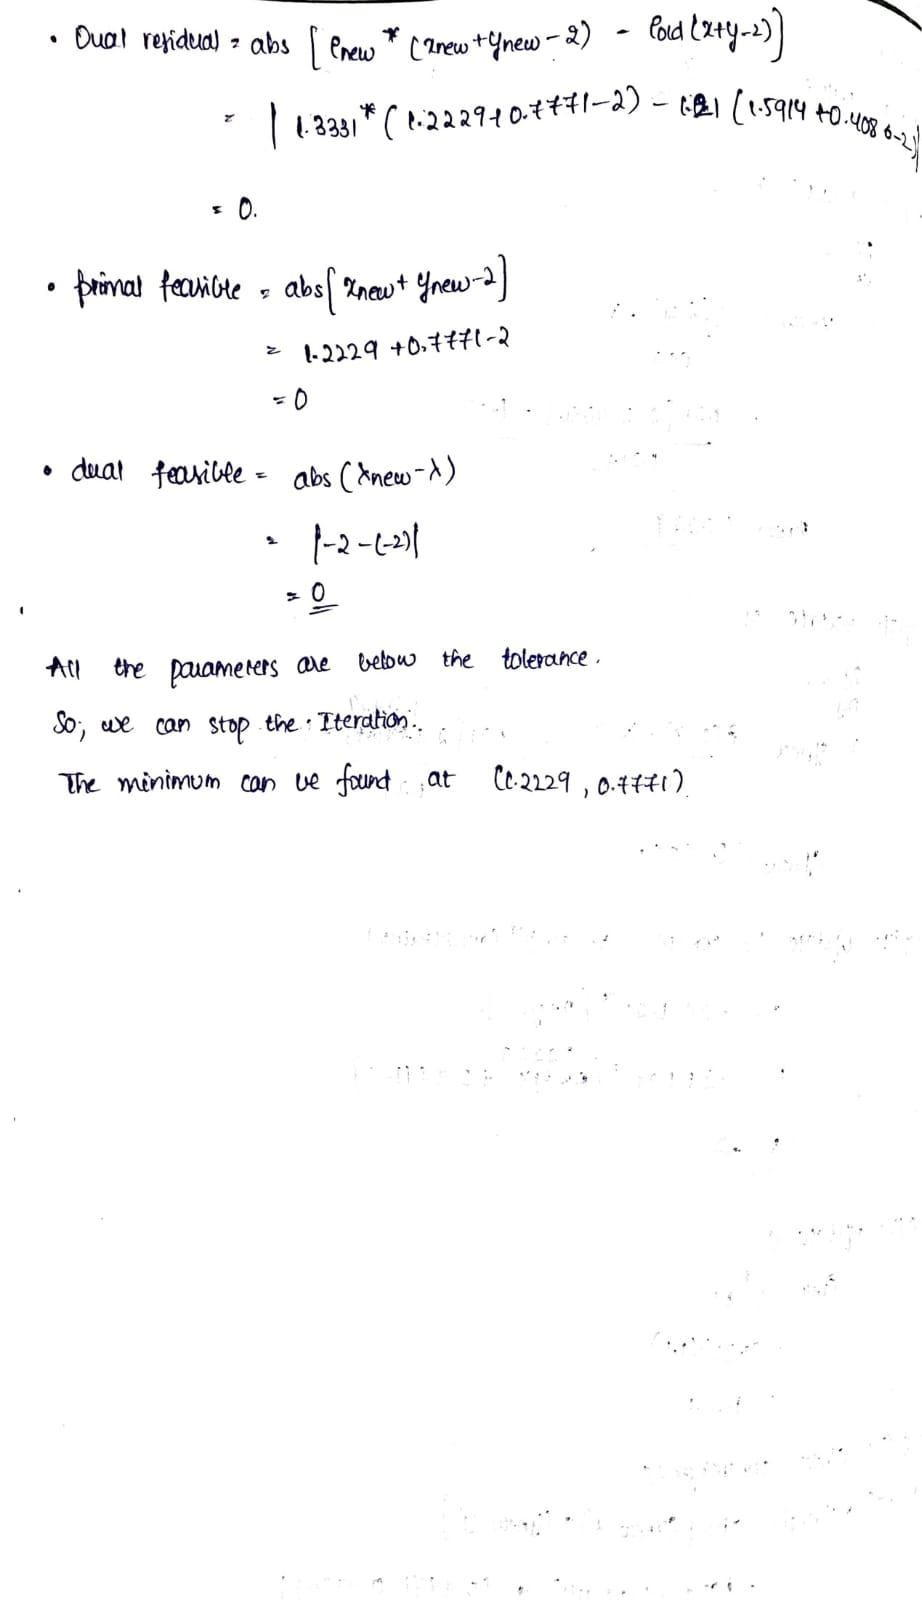 • Dual residual = abs [ρnew * (xnew+ynew-2) - ρold (x+y-2)]
= | 1.3331* (1.2229+0.7771-2) - 1.21 (1.5914 +0.4086-2)|
= 0.
• primal feasible = abs[xnew+ ynew-2]
= 1.2229 +0.7771-2
= 0
• dual feasible = abs (λnew-λ)
= |-2-(-2)|
= 0
All the parameters are below the tolerance.
So; we can stop the Iteration.
The minimum can be found at (1.2229, 0.7771)